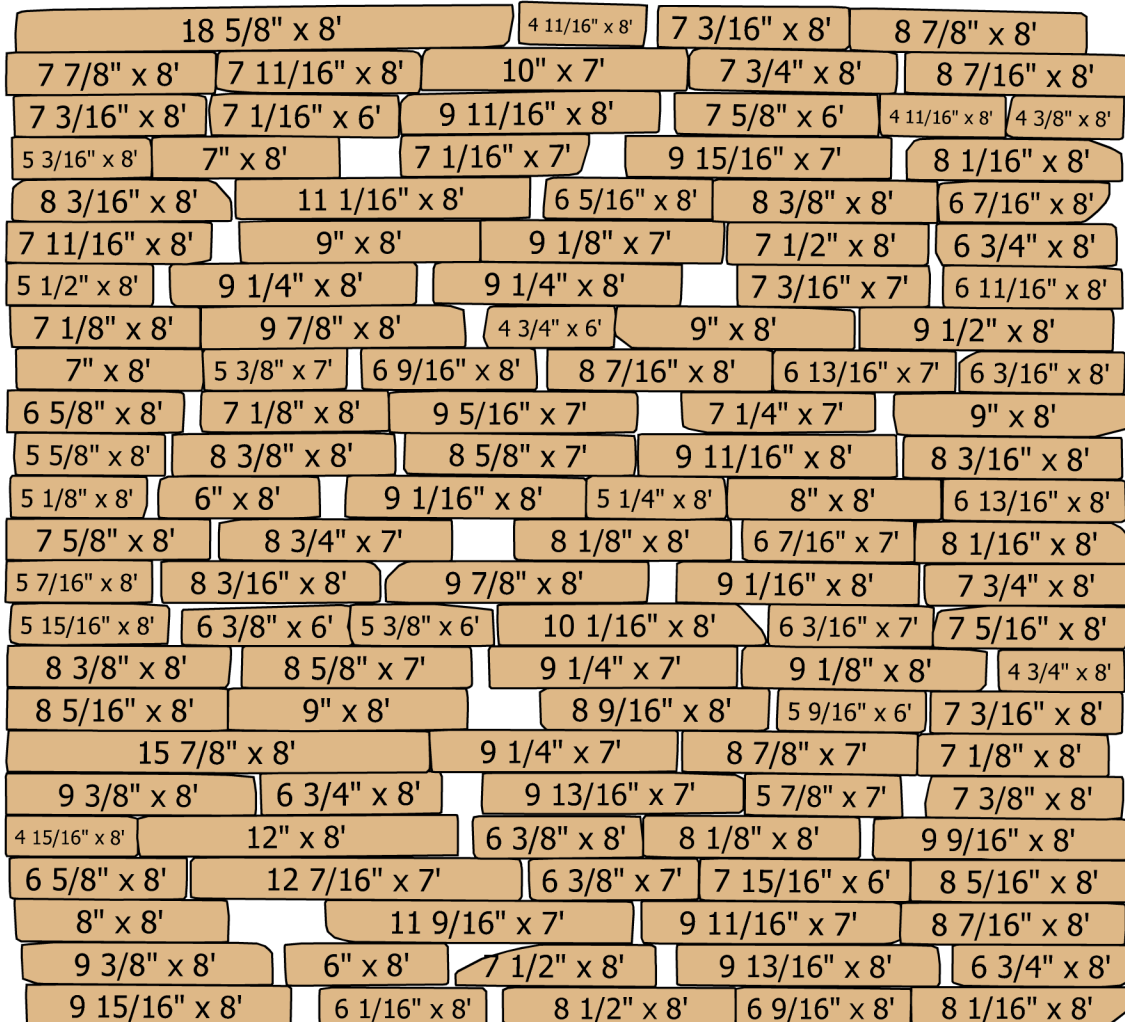 18 5/8" x 8' 4 11/16" x 8' 7 3/16" x 8' 8 7/8" x 8'
7 7/8" x 8' 7 11/16" x 8' 10" x 7' 7 3/4" x 8' 8 7/16" x 8'
7 3/16" x 8' 7 1/16" x 6' 9 11/16" x 8' 7 5/8" x 6' 4 11/16" x 8' 4 3/8" x 8'
5 3/16" x 8' 7" x 8' 7 1/16" x 7' 9 15/16" x 7' 8 1/16" x 8'
8 3/16" x 8' 11 1/16" x 8' 6 5/16" x 8' 8 3/8" x 8' 6 7/16" x 8'
7 11/16" x 8' 9" x 8' 9 1/8" x 7' 7 1/2" x 8' 6 3/4" x 8'
5 1/2" x 8' 9 1/4" x 8' 9 1/4" x 8' 7 3/16" x 7' 6 11/16" x 8'
7 1/8" x 8' 9 7/8" x 8' 4 3/4" x 6' 9" x 8' 9 1/2" x 8'
7" x 8' 5 3/8" x 7' 6 9/16" x 8' 8 7/16" x 8' 6 13/16" x 7' 6 3/16" x 8'
6 5/8" x 8' 7 1/8" x 8' 9 5/16" x 7' 7 1/4" x 7' 9" x 8'
5 5/8" x 8' 8 3/8" x 8' 8 5/8" x 7' 9 11/16" x 8' 8 3/16" x 8'
5 1/8" x 8' 6" x 8' 9 1/16" x 8' 5 1/4" x 8' 8" x 8' 6 13/16" x 8'
7 5/8" x 8' 8 3/4" x 7' 8 1/8" x 8' 6 7/16" x 7' 8 1/16" x 8'
5 7/16" x 8' 8 3/16" x 8' 9 7/8" x 8' 9 1/16" x 8' 7 3/4" x 8'
5 15/16" x 8' 6 3/8" x 6' 5 3/8" x 6' 10 1/16" x 8' 6 3/16" x 7' 7 5/16" x 8'
8 3/8" x 8' 8 5/8" x 7' 9 1/4" x 7' 9 1/8" x 8' 4 3/4" x 8'
8 5/16" x 8' 9" x 8' 8 9/16" x 8' 5 9/16" x 6' 7 3/16" x 8'
15 7/8" x 8' 9 1/4" x 7' 8 7/8" x 7' 7 1/8" x 8'
9 3/8" x 8' 6 3/4" x 8' 9 13/16" x 7' 5 7/8" x 7' 7 3/8" x 8'
4 15/16" x 8' 12" x 8' 6 3/8" x 8' 8 1/8" x 8' 9 9/16" x 8'
6 5/8" x 8' 12 7/16" x 7' 6 3/8" x 7' 7 15/16" x 6' 8 5/16" x 8'
8" x 8' 11 9/16" x 7' 9 11/16" x 7' 8 7/16" x 8'
9 3/8" x 8' 6" x 8' 7 1/2" x 8' 9 13/16" x 8' 6 3/4" x 8'
9 15/16" x 8' 6 1/16" x 8' 8 1/2" x 8' 6 9/16" x 8' 8 1/16" x 8'